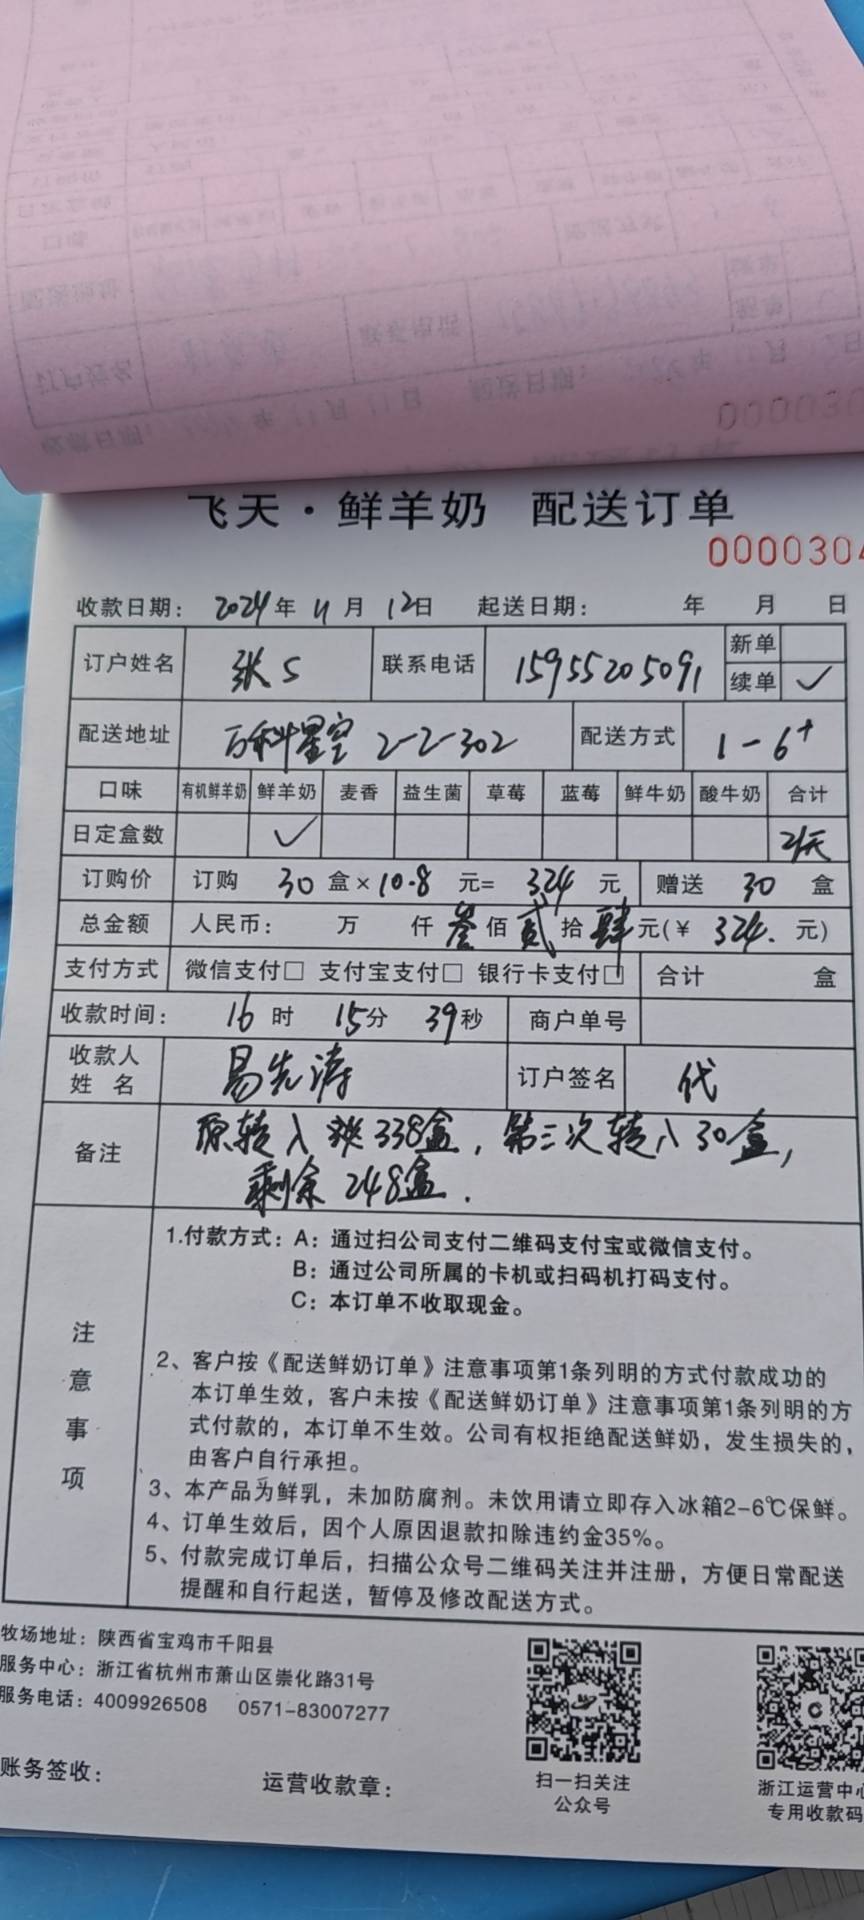 飞天·鲜羊奶 配送订单
0000304
收款日期： 2024年 11月 12日 起送日期： 年 月 日
订户姓名 张S 联系电话 15955205091 新单
续单 ✓
配送地址 万科星空 2-2-302 配送方式 1-6+
口味 有机鲜羊奶 鲜羊奶 麦香 益生菌 草莓 蓝莓 鲜牛奶 酸牛奶 合计
日定盒数 ✓ 2/天
订购价 订购 30 盒×10.8 元= 324 元 赠送 30 盒
总金额 人民币： 万 仟 叁佰 贰拾 肆元(￥ 324. 元)
支付方式 微信支付□ 支付宝支付□ 银行卡支付□ 合计 盒
收款时间： 16时 15分 39秒 商户单号
收款人姓名 易先涛 订户签名 代
备注 原转入 338盒，第三次转入30盒，
剩余 248盒.
注意事项
1.付款方式：A：通过扫公司支付二维码支付宝或微信支付。
B：通过公司所属的卡机或扫码机打码支付。
C：本订单不收取现金。
2、客户按《配送鲜奶订单》注意事项第1条列明的方式付款成功的
本订单生效，客户未按《配送鲜奶订单》注意事项第1条列明的方
式付款的，本订单不生效。公司有权拒绝配送鲜奶，发生损失的，
由客户自行承担。
3、本产品为鲜乳，未加防腐剂。未饮用请立即存入冰箱2-6℃保鲜。
4、订单生效后，因个人原因退款扣除违约金35%。
5、付款完成订单后，扫描公众号二维码关注并注册，方便日常配送
提醒和自行起送，暂停及修改配送方式。
牧场地址：陕西省宝鸡市千阳县
服务中心：浙江省杭州市萧山区崇化路31号
服务电话：4009926508 0571-83007277
扫一扫关注
公众号
浙江运营中心
专用收款码
账务签收： 运营收款章：